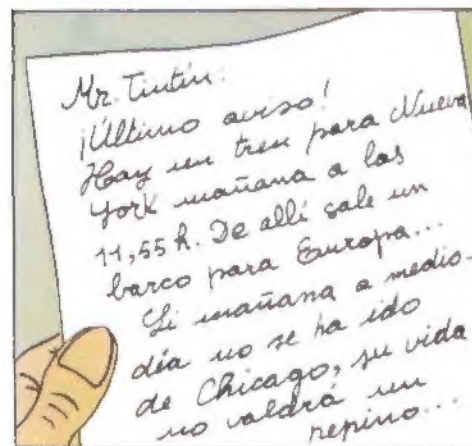 Mr. Tintín:
¡Último aviso!
Hay un tren para Nueva
York mañana a las
11,55 h. De allí sale un
barco para Europa...
Si mañana a medio-
día no se ha ido
de Chicago, su vida
no valdrá un
pepino...